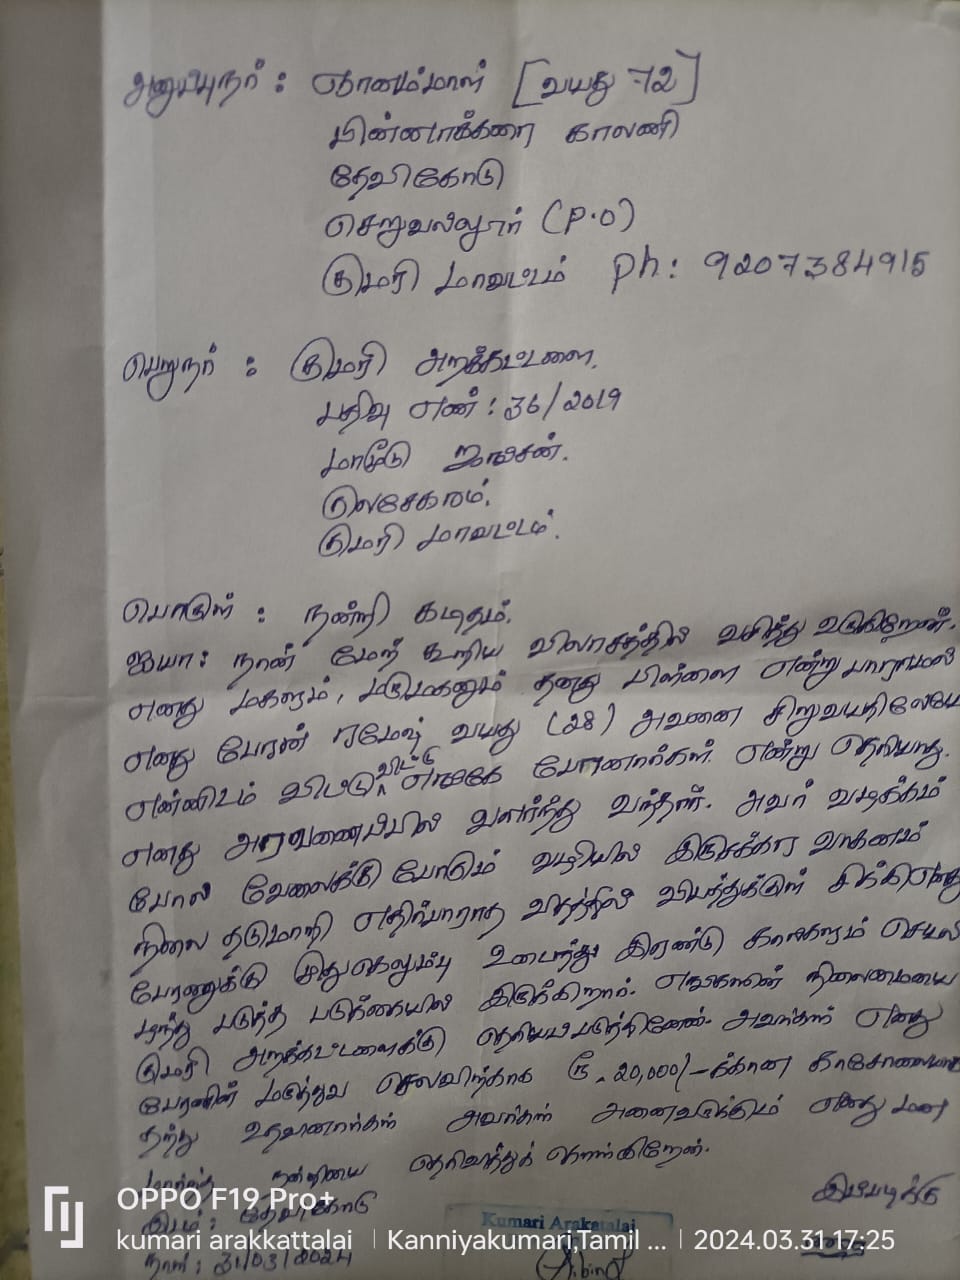 அனுப்புநர் : ஞானம்மாள் [வயது 72]
மின்னாக்கரை காலணி
தேவிகோடு
செறுவல்லூர் (P.O)
குமரி மாவட்டம் Ph: 9207384915
பெறுநர் : குமரி அறக்கட்டளை.
பதிவு எண் : 36/2019
மாமூடு ஜங்சன்.
குலசேகரம்.
குமரி மாவட்டம்.
பொருள் : நன்றி கடிதம்.
ஐயா : நான் மேற் கூறிய விலாசத்தில் வசித்து வருகிறேன்.
எனது மகளும், மருமகனும் தனது பிள்ளை என்று பாராமல்
எனது பேரன் ரமேஷ் வயது (28) அவனை சிறுவயதிலேயே
என்னிடம் விட்டு விட்டு எங்கே போனார்கள் என்று தெரியாது.
எனது அரவணைப்பில் வளர்ந்து வந்தான். அவர் வழக்கம்
போல் வேலைக்கு போகும் வழியில் இருசக்கர வாகனம்
நிலை தடுமாறி எதிர்பாராத விதத்தில் விபத்துக்குள் சிக்கி எனது
பேரனுக்கு முதுகெலும்பு உடைந்து இரண்டு கால்களும் செயல்
இழந்து படுத்த படுக்கையில் இருக்கிறார். எங்களின் நிலைமையை
குமரி அறக்கட்டளைக்கு தெரியப்படுத்தினேன். அவர்கள் எனது
பேரனின் மருத்துவ செலவிற்காக ரூ. 20,000/-க்கான காசோலையை
தந்து உதவினார்கள் அவர்கள் அனைவருக்கும் எனது மன
மார்ந்த நன்றியை தெரிவித்துக் கொள்கிறேன்.
இப்படிக்கு
இடம் : தேவிகோடு
நாள் : 31/03/2024
Kumari Arakatalai
OPPO F19 Pro+
kumari arakkattalai | Kanniyakumari,Tamil ... | 2024.03.31 17:25